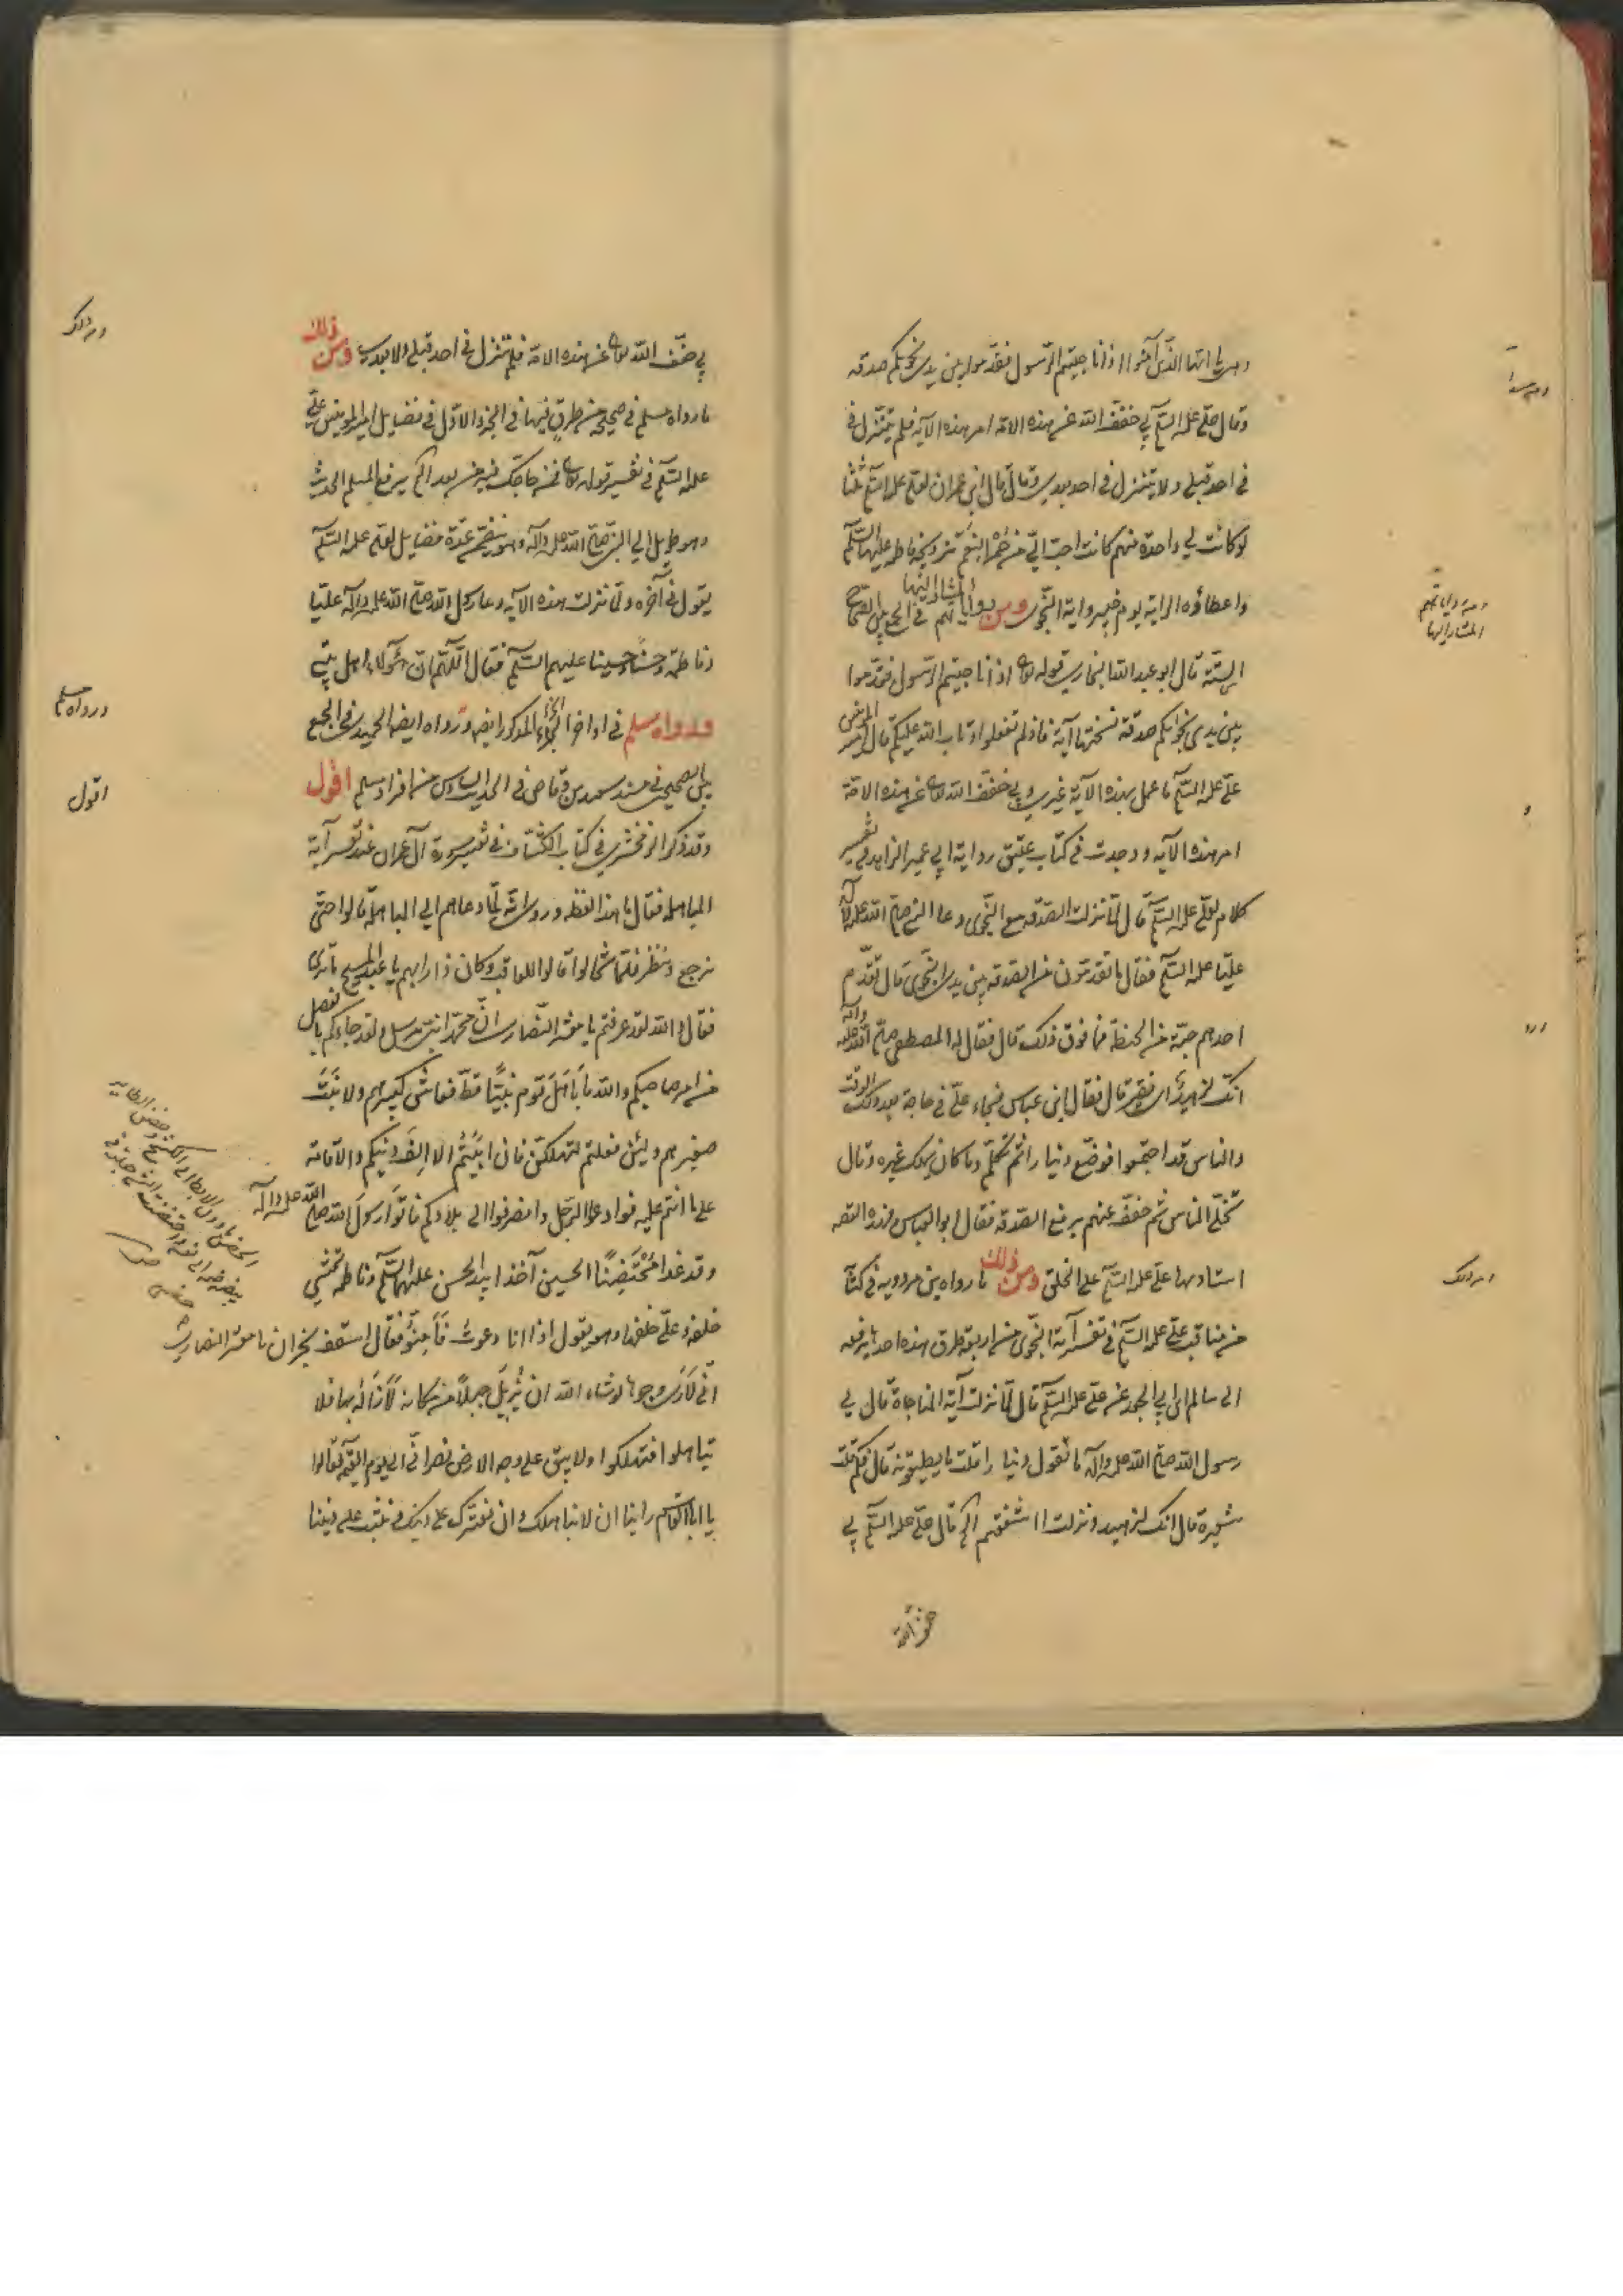 وهي يا ايها الذين آمنوا اذا ناجيتم الرسول فقدموا بين يدي نجويكم صدقه
وقال علي عليه السلم بي خفف الله عن هذه الامة امر هذه الآية فلم تنزل في
في احد قبلي ولا تنزل في احد بعدي وقال قال ابن عمران لعلي عليه السلم ثلثا
لو كانت لي واحدة منهم كانت احب الي من حمر النعم تزويجه فاطمه عليها السلم
واعطاؤه الراية يوم خيبر واية النجوى ومن رواياتهم المشار اليها في الجمع بين الصحاح
الستة قال ابو عبد الله البخاري قوله تعالى اذا ناجيتم الرسول فقدموا
بين يدي نجواكم صدقة نسختها آية فاذ لم تفعلوا وتاب الله عليكم قال امير المؤمنين
علي عليه السلم ما عمل بهذه الآية غيري وبي خفف الله تعالى عن هذه الامة
امر هذه الآية ووجدت في كتاب عتيق رواية ابي عمير الزاهد في تفسير
كلام لعلي عليه السلم قال لما نزلت الصدقه مع النجوى دعا النبي صلى الله عليه وآله
عليا عليه السلم فقال ما تقدمون من الصدقه بين يدي النجوى قال تقدم
احدهم حبة من الحنطة فما فوق ذلك قال فقال له المصطفى صلى الله عليه وآله
انك لزهيد اي فقير قال فقال ابن عباس فجاء علي في حاجة بعد ذلك الوقت
والناس قد اجتمعوا فوضع دينارا ثم تكلم وما كان يملك غيره وقال
تخلى الناس ثم خفف عنهم برفع الصدقه فقال ابو العباس فهذه القصه
استاد بها علي عليه السلم على الخلق ومن ذلك ما رواه بن مردويه في كتاب
من مناقب علي عليه السلم في تفسير آية النجوى من اربعة طرق هذه احدها يرفعه
الى سالم ابن ابي الجعد عن علي عليه السلم قال لما نزلت آية المناجاة قال لي
رسول الله صلى الله عليه وآله ما تقول دينارا قلت ما يطيقونه قال فكم قلت
شعيرة قال انك لزهيد ونزلت ااشفقتم الخ قال علي عليه السلم بي
بي خفف الله تعالى عن هذه الامة فلم تنزل في احد قبلي ولا بعدي ومن ذلك
ما رواه مسلم في صحيحه من طرق فيها في الجزء الاول في فضايل امير المؤمنين علي
عليه السلم في تفسير قوله تعالى فمن حاجك فيه من بعد الخ يرفع المسلم الحديث
وهو طويل الى النبي صلى الله عليه وآله وهو يتضمن عدة فضايل لعلي عليه السلم
يقول في آخره ولما نزلت هذه الآية دعا رسول الله صلى الله عليه وآله عليا
وفاطمة وحسنا وحسينا عليهم السلم فقال اللهم ان هؤلاء اهل بيتي
ورواه مسلم في اواخر الجزء المذكور ايضا ورواه ايضا الحميدي في الجمع
بين الصحيحين في مسند سعد بن وقاص في الحديث السادس من افراد مسلم اقول
وقد ذكر الزمخشري في كتاب الكشاف في تفسير سورة آل عمران عند تفسير آية
المباهله فقال ما هذا لفظه وروى انه لما دعاهم الى المباهلة قالوا حتى
نرجع وننظر فلما تخالوا قالوا للعاقب وكان ذا رايهم يا عبد المسيح ما ترى
فقال والله لقد عرفتم يا معشر النصارى ان محمدا نبي مرسل ولقد جاءكم بالفصل
من امر صاحبكم والله ما باهل قوم نبيا قط فعاش كبيرهم ولا نبت
صغيرهم ولئن فعلتم لتهلكن فان ابيتم الا الف دينكم والاقامة
على ما انتم عليه فوادعوا الرجل وانصرفوا الى بلادكم فاتوا رسول الله صلى الله عليه وآله
وقد غدا محتضنا الحسين آخذا بيد الحسن عليهما السلم وفاطمه تمشي
خلفه وعلي خلفها وهو يقول اذا انا دعوت فامنوا فقال اسقف نجران يا معشر النصارى
اني لارى وجوها لو شاء الله ان يزيل جبلا من مكانه لازاله بها فلا
تباهلوا فتهلكوا ولا يبق على وجه الارض نصراني الى يوم القيمة فقالوا
يا ابا القاسم راينا ان لا نباهلك وان نقرك على دينك ونثبت على ديننا
ومن رواياتهم
المشار اليها
ومن ذلك
ومن ذلك
ورواه مسلم
اقول